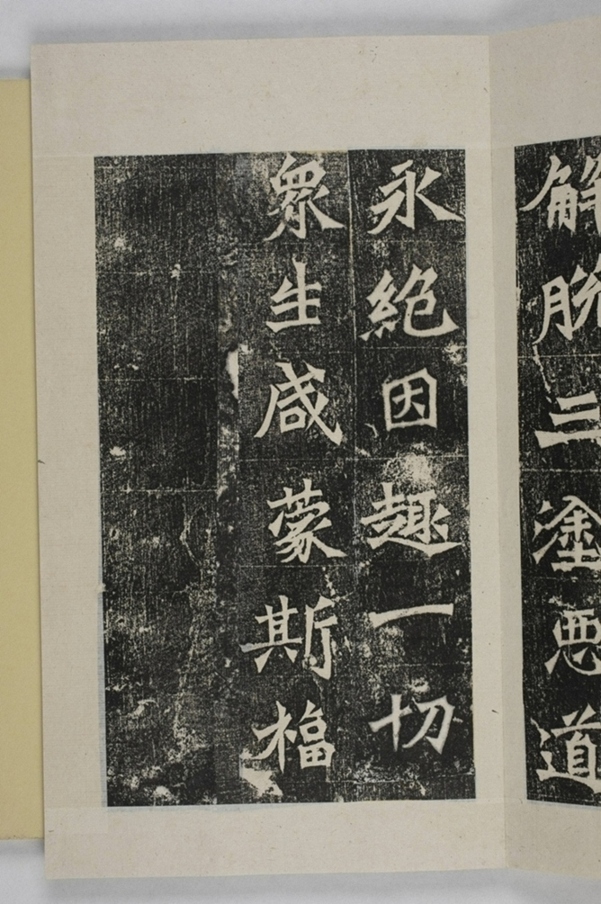 解脱三塗惡道
永絶因趣一切
衆生咸蒙斯福